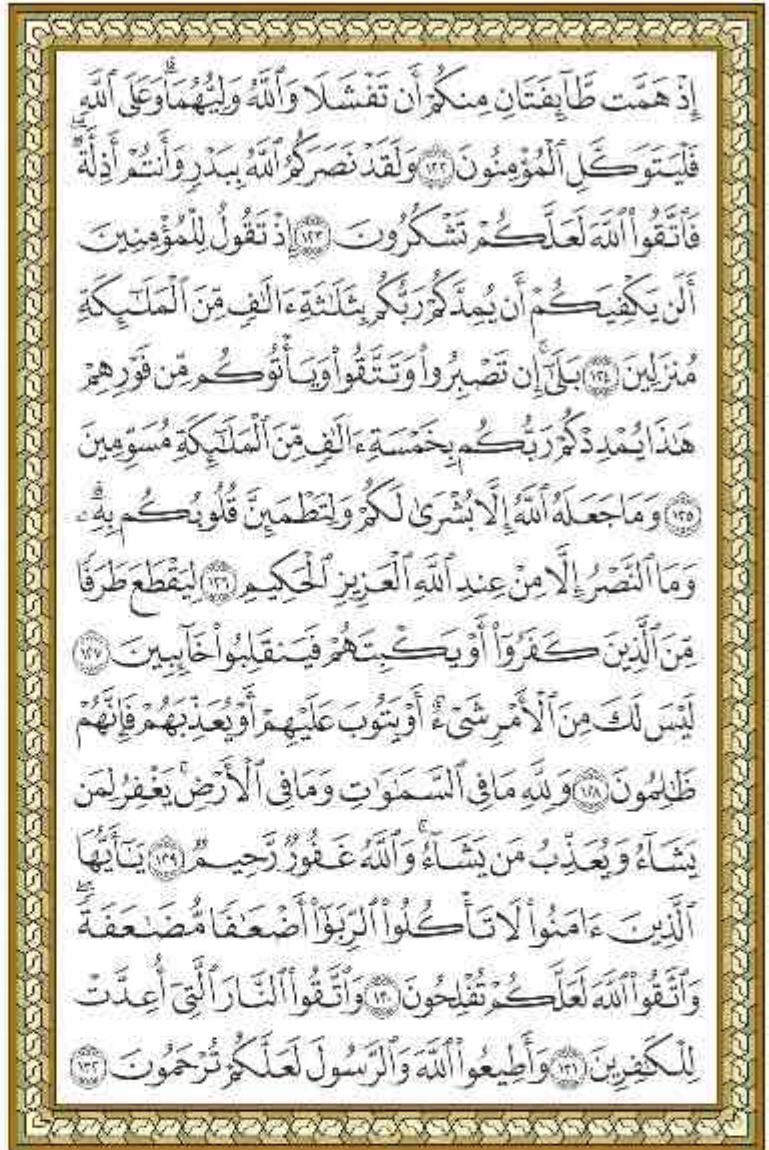 إِذْ هَمَّت طَّآئِفَتَانِ مِنكُمْ أَن تَفْشَلَا وَٱللَّهُ وَلِيُّهُمَا ۗ وَعَلَى ٱللَّهِ
فَلْيَتَوَكَّلِ ٱلْمُؤْمِنُونَ ١٢٢ وَلَقَدْ نَصَرَكُمُ ٱللَّهُ بِبَدْرٍ وَأَنتُمْ أَذِلَّةٌ ۖ
فَٱتَّقُوا۟ ٱللَّهَ لَعَلَّكُمْ تَشْكُرُونَ ١٢٣ إِذْ تَقُولُ لِلْمُؤْمِنِينَ
أَلَن يَكْفِيَكُمْ أَن يُمِدَّكُمْ رَبُّكُم بِثَلَٰثَةِ ءَالَٰفٍ مِّنَ ٱلْمَلَٰٓئِكَةِ
مُنزَلِينَ ١٢٤ بَلَىٰٓ ۚ إِن تَصْبِرُوا۟ وَتَتَّقُوا۟ وَيَأْتُوكُم مِّن فَوْرِهِمْ
هَٰذَا يُمْدِدْكُمْ رَبُّكُم بِخَمْسَةِ ءَالَٰفٍ مِّنَ ٱلْمَلَٰٓئِكَةِ مُسَوِّمِينَ
١٢٥ وَمَا جَعَلَهُ ٱللَّهُ إِلَّا بُشْرَىٰ لَكُمْ وَلِتَطْمَئِنَّ قُلُوبُكُم بِهِۦ ۗ
وَمَا ٱلنَّصْرُ إِلَّا مِنْ عِندِ ٱللَّهِ ٱلْعَزِيزِ ٱلْحَكِيمِ ١٢٦ لِيَقْطَعَ طَرَفًا
مِّنَ ٱلَّذِينَ كَفَرُوٓا۟ أَوْ يَكْبِتَهُمْ فَيَنقَلِبُوا۟ خَآئِبِينَ ١٢٧
لَيْسَ لَكَ مِنَ ٱلْأَمْرِ شَىْءٌ أَوْ يَتُوبَ عَلَيْهِمْ أَوْ يُعَذِّبَهُمْ فَإِنَّهُمْ
ظَٰلِمُونَ ١٢٨ وَلِلَّهِ مَا فِى ٱلسَّمَٰوَٰتِ وَمَا فِى ٱلْأَرْضِ ۚ يَغْفِرُ لِمَن
يَشَآءُ وَيُعَذِّبُ مَن يَشَآءُ ۚ وَٱللَّهُ غَفُورٌ رَّحِيمٌ ١٢٩ يَٰٓأَيُّهَا
ٱلَّذِينَ ءَامَنُوا۟ لَا تَأْكُلُوا۟ ٱلرِّبَوٰٓا۟ أَضْعَٰفًا مُّضَٰعَفَةً ۖ
وَٱتَّقُوا۟ ٱللَّهَ لَعَلَّكُمْ تُفْلِحُونَ ١٣٠ وَٱتَّقُوا۟ ٱلنَّارَ ٱلَّتِىٓ أُعِدَّتْ
لِلْكَٰفِرِينَ ١٣١ وَأَطِيعُوا۟ ٱللَّهَ وَٱلرَّسُولَ لَعَلَّكُمْ تُرْحَمُونَ ١٣٢